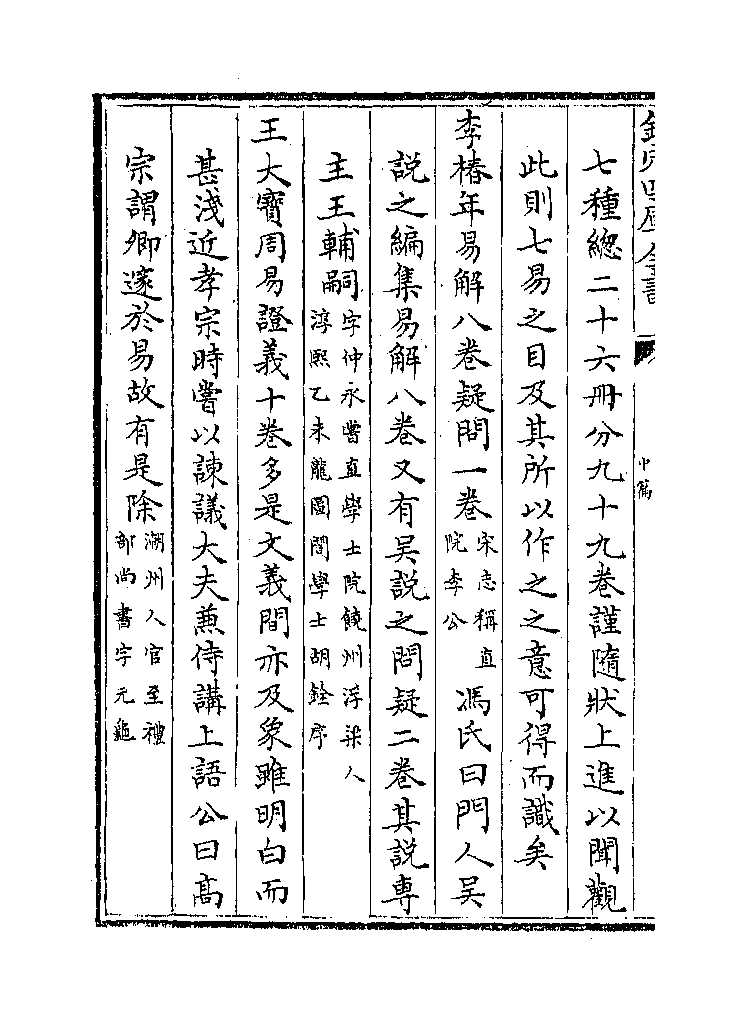 欽定四庫全書
中篇
七種總二十六冊分九十九卷謹隨狀上進以聞觀
此則七易之目及其所以作之之意可得而識矣
李椿年易解八卷疑問一卷宋志稱直院李公馮氏曰門人吴
說之編集易解八卷又有吴説之問疑二卷其説専
主王輔嗣字仲永嘗直學士院饒州浮梁人淳熙乙未龍圖閣學士胡銓序
王大寶周易證義十卷多是文義間亦及象雖明白而
甚淺近孝宗時嘗以諫議大夫兼侍講上語公曰髙
宗謂卿邃於易故有是除潮州人官至禮部尚書字元龜